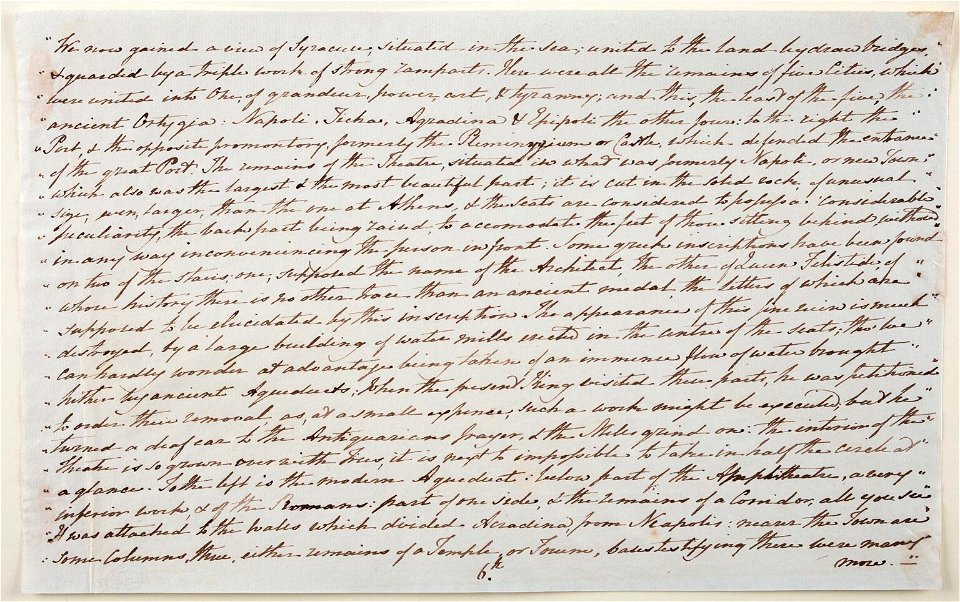 "We now gained a view of Syracuse, situated in the sea; united to the land by draw bridges,
"& guarded by a triple work of strong ramparts. Here were all the remains of five Cities, which
"were united into One of grandeur, power, art, & tyranny; and this, the least of the five, the
"ancient Ortygia: Napoli, Ticha, Acradina & Epipoli the other four: to the right the
"Port & the opposit promontory, formerly the Plemmyrium or Castle, which defended the entrance
"of the great Port. The remains of the Theatre, situated in what was formerly Napoli, or new Town
"which also was the largest & the most beautiful part; it is cut in the solid rock, of unusual
"size, even, larger, than the one at Athens, & the seats are considered to possess a considerable
"peculiarity, the back part being raised, to accomodate the feet of those sitting behind, without
"in any way inconveniencing the person in front. Some greek inscriptions have been found
"on two of the stairs, one, supposed the name of the Architect, the other of Queen Felistide, of
"whose history there is no other trace than an ancient medal, the letters of which are
"supposed to be elucidated by this inscription. The appearance of this fine ruin is much
"destroyed, by a large building of water mills erected in the centre of the seats, tho we
"can hardly wonder at advantage being taken of an immence flow of water brought
"hither by ancient Aqueducts, When the present King visited these parts, he was petitioned
"to order their removal, as, at a small expence, such a work might be executed, but he
"turned a deaf ear to the Antiquarians prayer, & the Mills grind on: the interior of the
"theatre is so grown over with Trees, it is next to impossible to take in half the circle at
"a glance. To the left is the modern Aqueduct: below part of the Amphitheatre, a very
"inferior work & of the Romans: part of one side, & the remains of a Corridor, all you see
"It was attached to the walls which divided Acradina, from Neapolis: nearer the Town are
"Some Columns, three, either remains of a Temple, or Forum, bases testifying there were many
more."
6.th